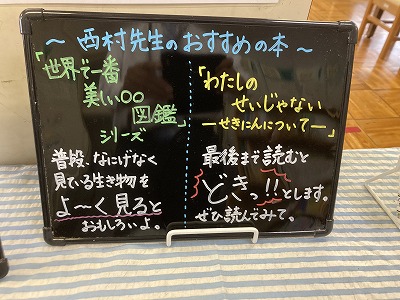 ～ 西村先生のおすすめの本 ～
「世界で一番
美しい○○
図鑑」
シリーズ
普段、なにげなく
見ている生き物を
よ～く見ると
おもしろいよ。
「わたしの
せいじゃない
―せきにんについて―」
最後まで読むと
どきっ!!とします。
ぜひ読んでみて。